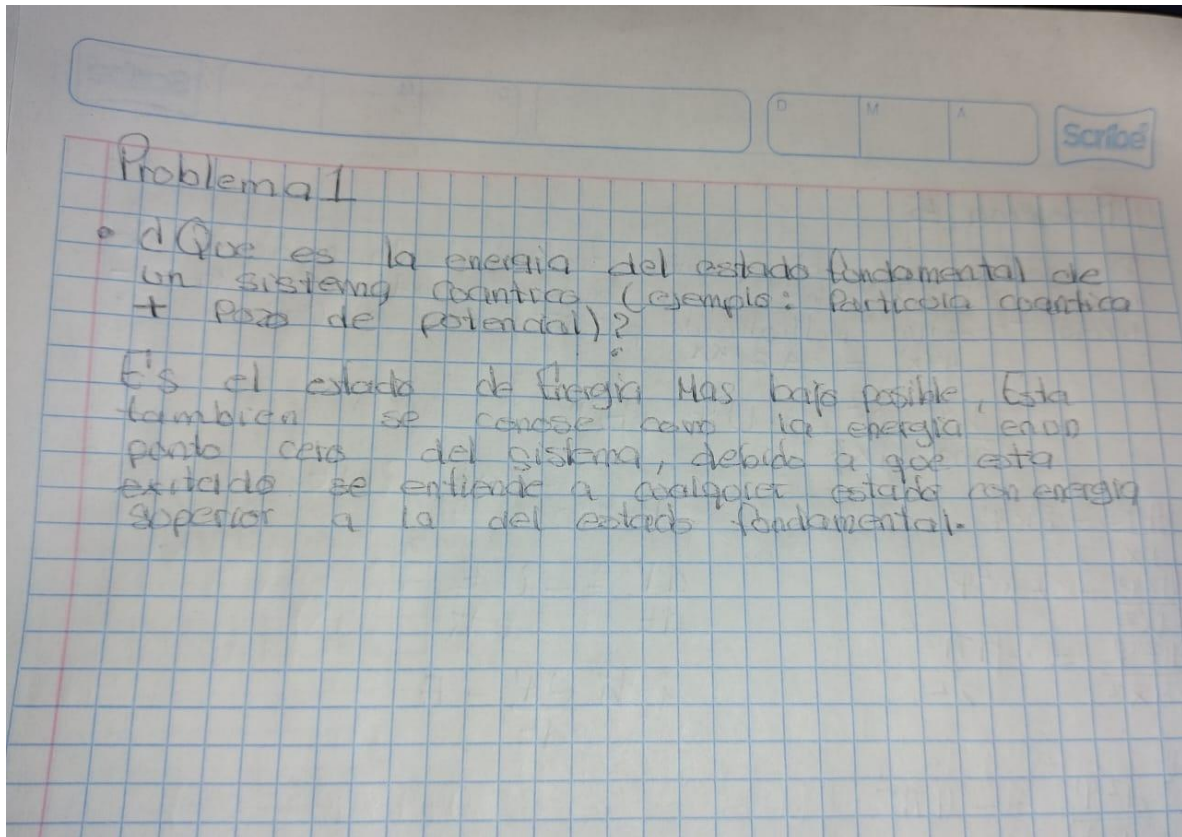 D M A
Scribe
Problema 1
• ¿Que es la energia del estado fundamental de
un sistema cuantico (ejemplo: Particula cuantica
+ Pozo de potencial)?
Es el estado de Energia Mas bajo posible, Esta
tambien se conose como la energia en un
punto cero del sistema, debido a que esta
exitado se entiende a cualquier estado con energia
superior a la del estado fundamental.